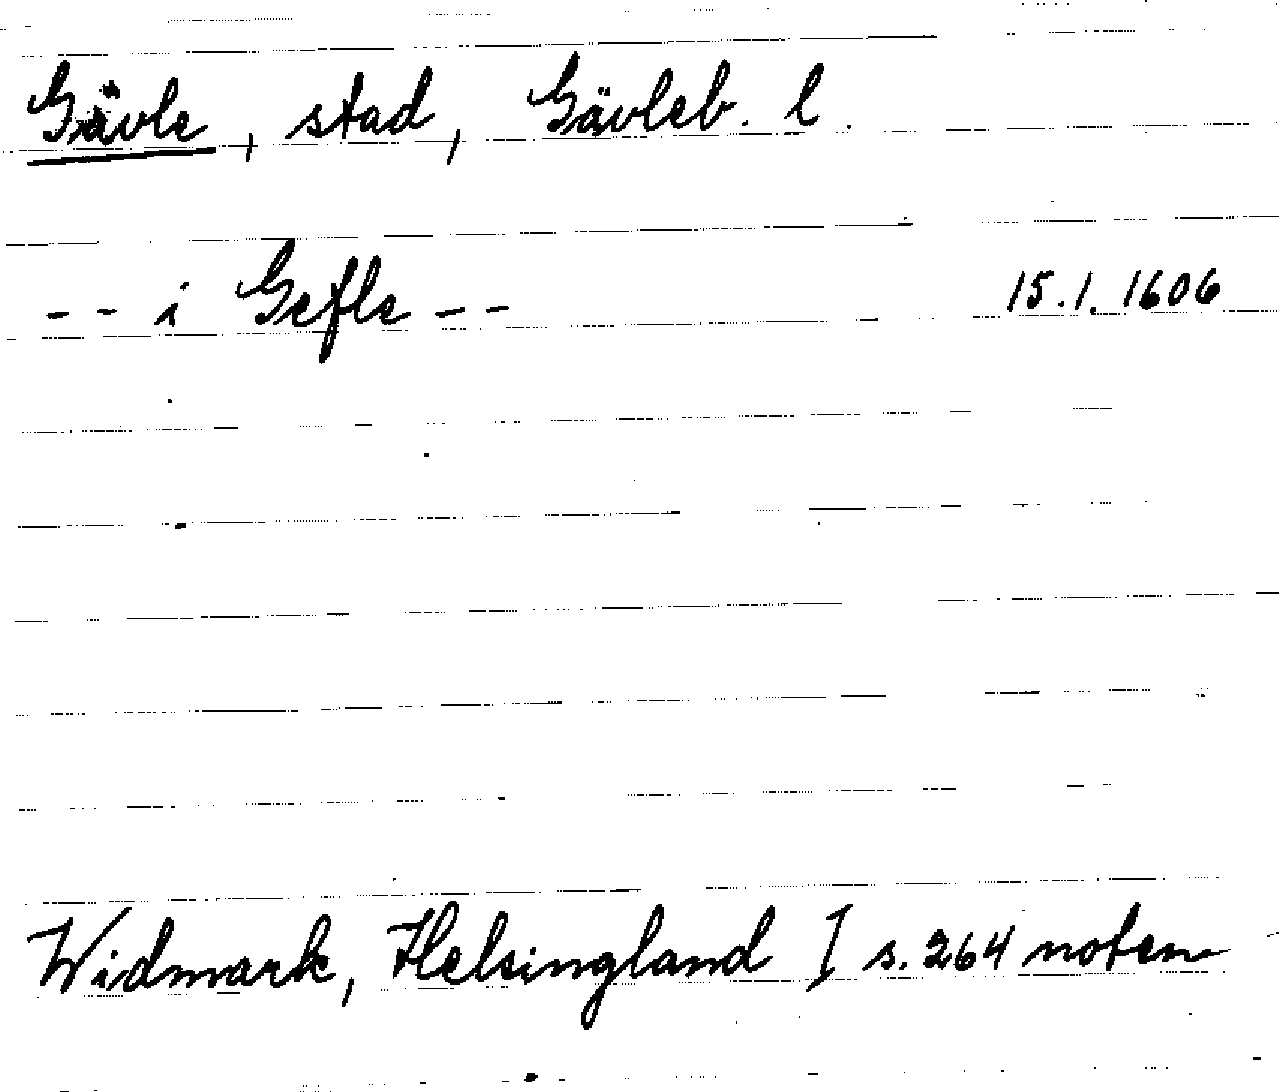 Gävle, stad, Gävleb. l.
-- i Gefle -- 15.1.1606
Widmark, Helsingland I s. 264 noten